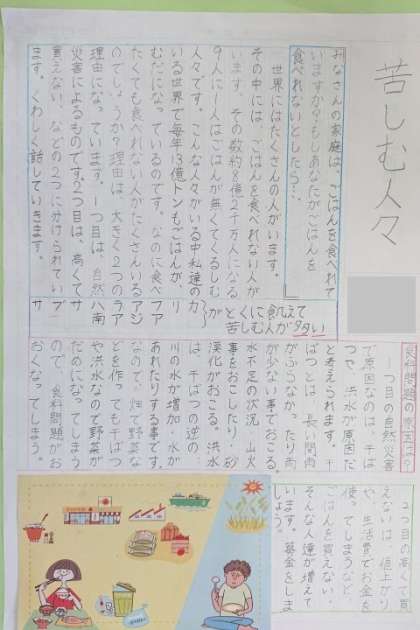 苦しむ人々
みなさんの家庭は、ごはんを食べれて
いますか?もしあなたがごはんを
食べれないとしたら?…
世界にはたくさんの人がいます。
その中には ごはんを食べれない人が
います。その数約8億2千万人になる
9人に1人はごはんが無くてくるしむ
人々です。こんな人々がいる中私達の
いる世界で毎年13億トンもごはんが、
むだになっているのです。なのに食べ
たくても食べれない人がたくさんいる
のでしょうか?理由は、大きく2つの
理由になっています。1つ目は、自然
災害によるものです。2つ目は、高くて
買えない、などの2つに分けられてい
ます。くわしく話していきます。
とくに飢えて
苦しむ人が多い
が
カ
リ
フア
アジ
ラア
ハ南
サ
ブ
サ
食料問題の原因は?
1つ目の自然災害
で原因なのは、干ば
つや、洪水が原因だ
と考えられます。干
ばつとは、長い間雨
がふらなかったり雨
が少ない事でおこる。
水不足の状況。山火
事をおこしたり、砂
漠化がおこる。洪水
は、干ばつの逆の
川の水が増加・水が
あれたりする事です。
なので、畑で野菜な
どを作っても干ばつ
や洪水なので野菜が
だめになってしまう
ので、食料問題がお
おくなってしまう。
2つ目の高くて買
えないは、値上がり
や、生活費でお金を
使ってしまうなど、
ごはんを買えない。
そんな人達が増えて
います。募金をしま
しょう。